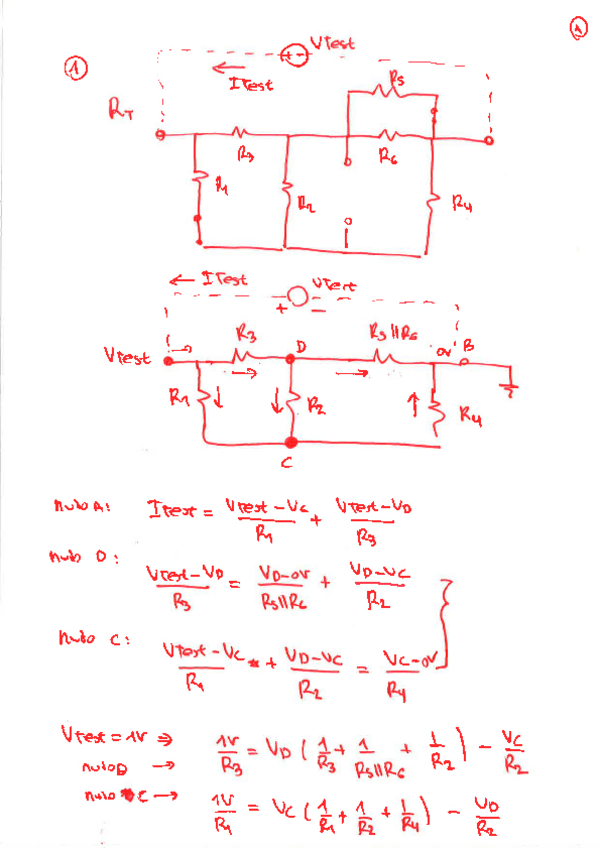 A
1
Vtest
+ -
Itest
R5
RT
R3
R6
R1
R2
R4
← Itest
Vtest
+ -
R3
D
R5||R6
0V
B
Vtest
R1
R2
R4
C
nudo A: Itest = (Vtest - Vc)/R1 + (Vtest - VD)/R3
nudo D:
(Vtest - VD)/R3 = (VD - 0V)/(R5||R6) + (VD - Vc)/R2
nudo C:
(Vtest - Vc)/R1 + (VD - Vc)/R2 = (Vc - 0V)/R4
Vtest = 1V ⇒
nudo D → 1V/R3 = VD (1/R3 + 1/(R5||R6) + 1/R2) - Vc/R2
nudo C → 1V/R1 = Vc (1/R1 + 1/R2 + 1/R4) - VD/R2